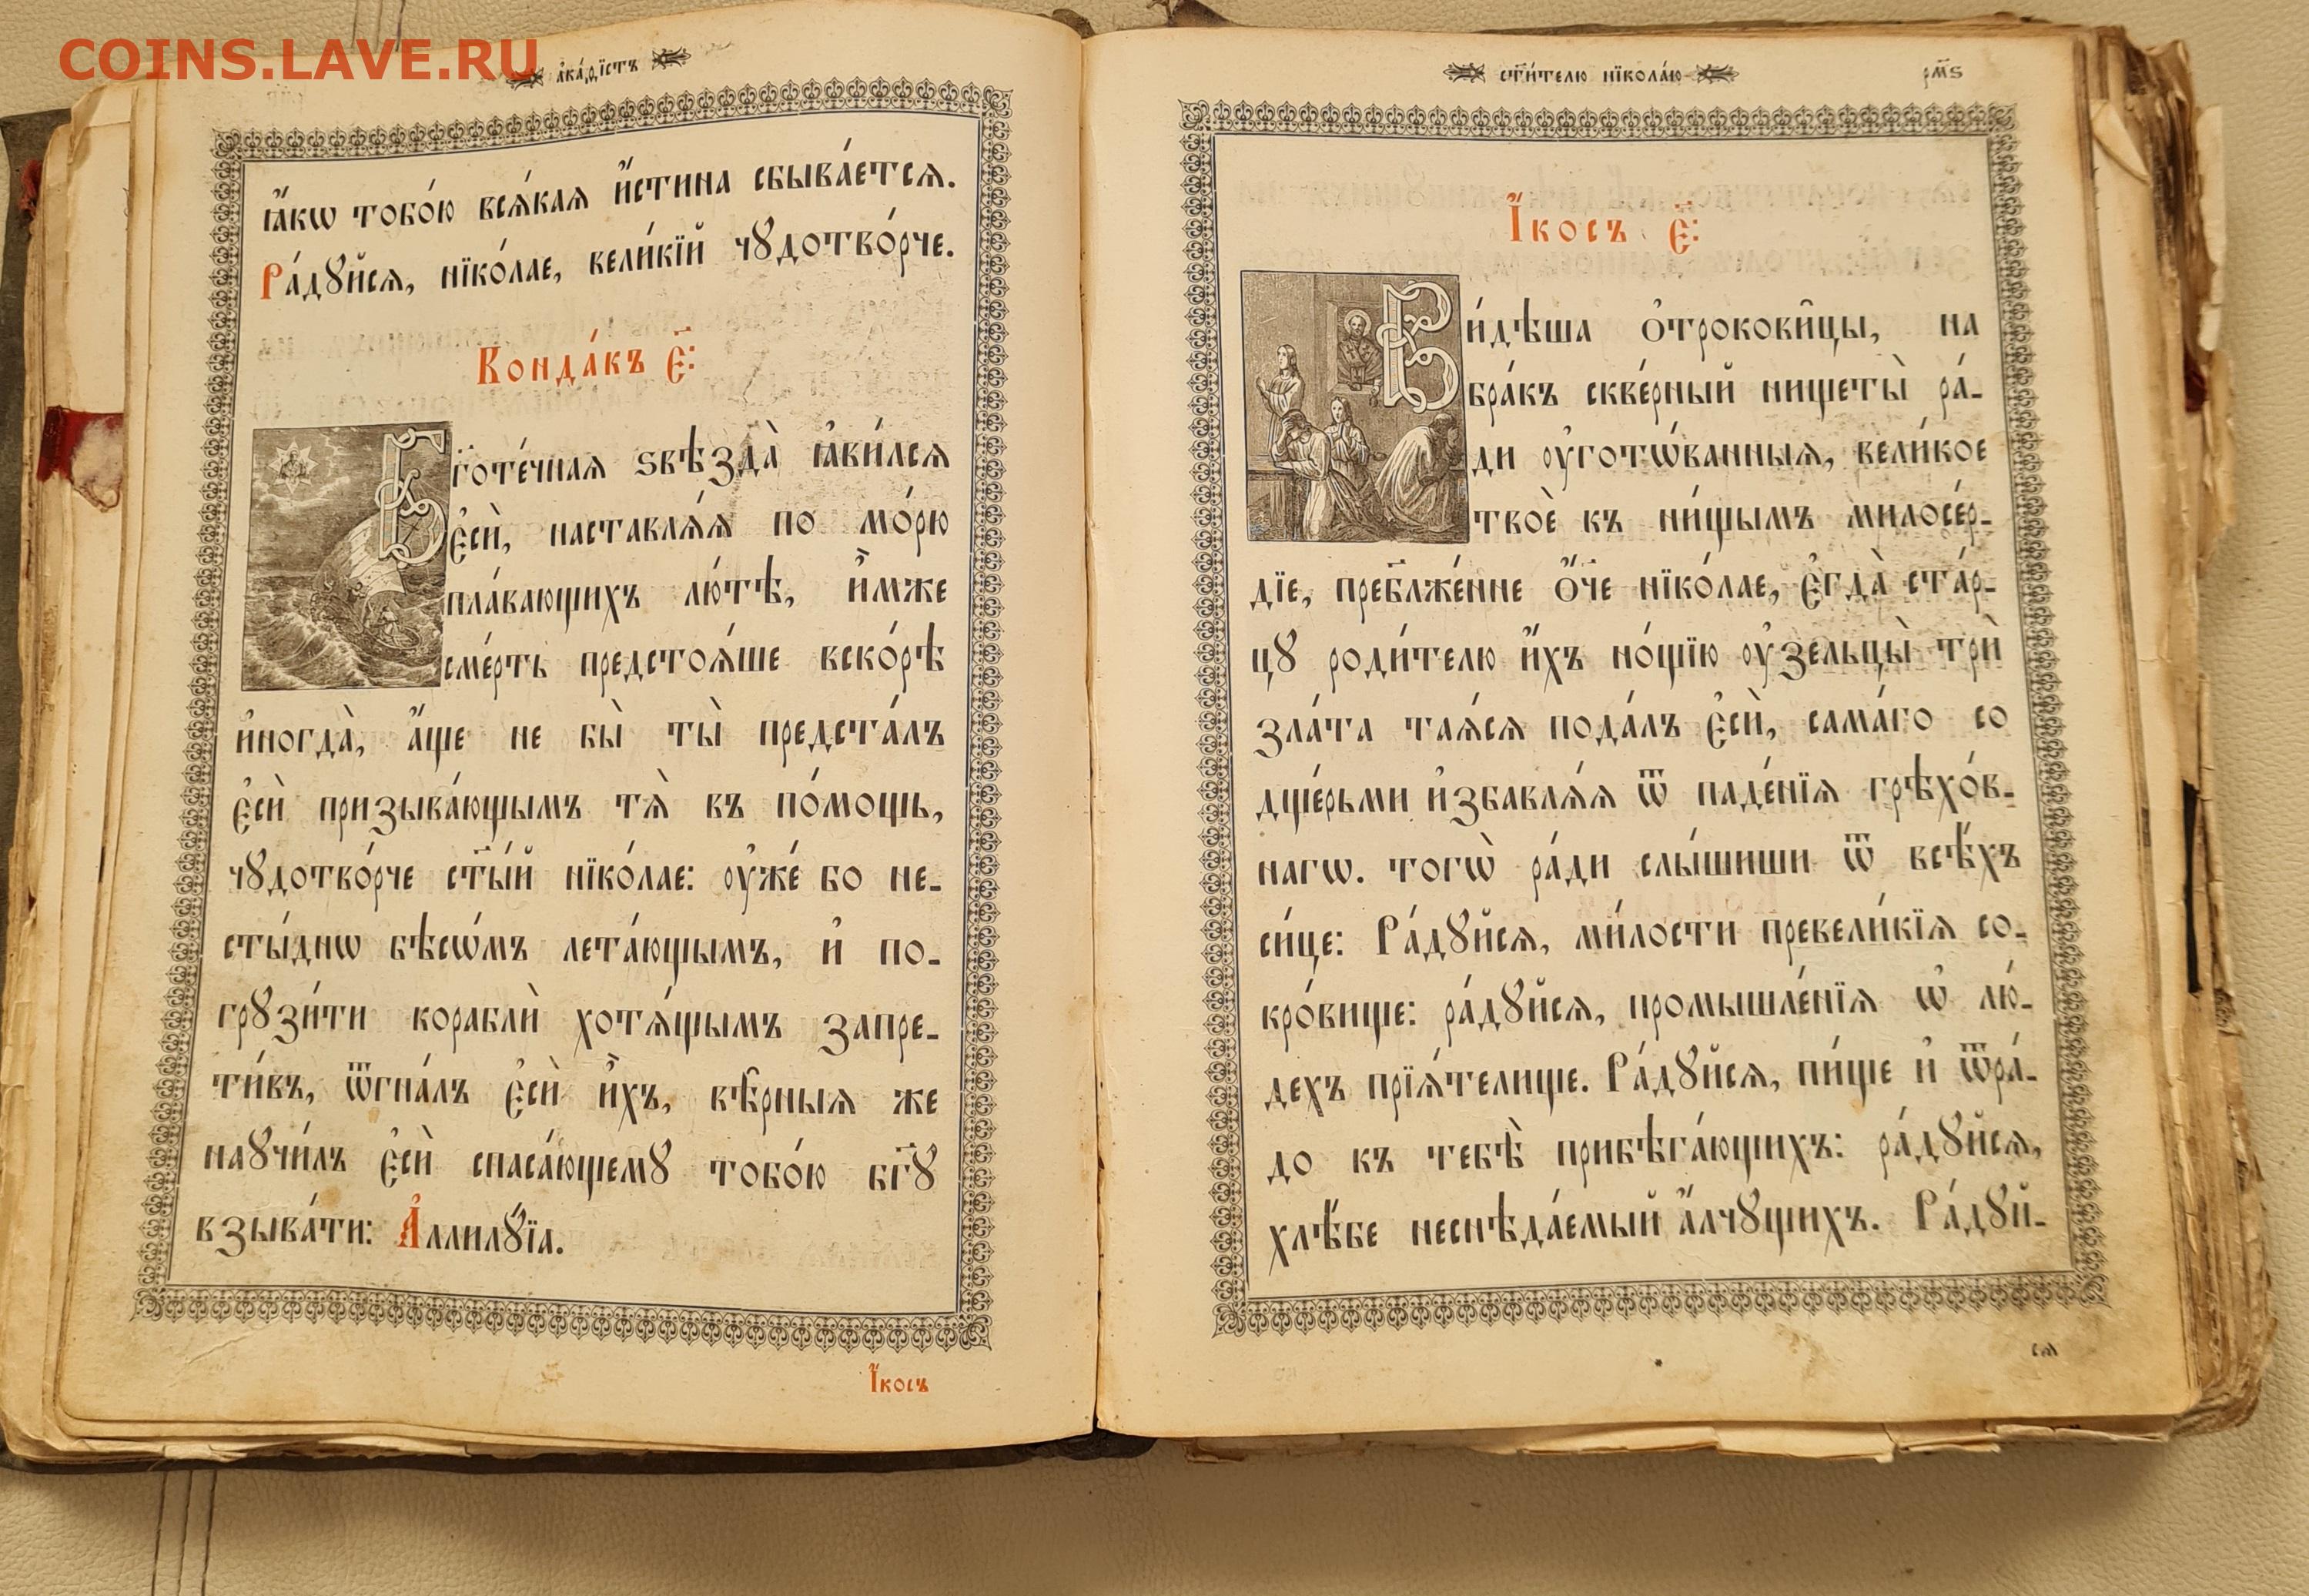 COINS.LAVE.RU
а҆ка́ѳїстъ
ꙗ҆́кѡ тобо́ю всѧ́каѧ и҆́стина сбыва́етсѧ.
Ра́дꙋйсѧ, нїко́лае, вели́кїй чꙋдотво́рче.
Конда́къ є҃:
Бг҃оте́чнаѧ ѕвѣзда̀ ꙗ҆ви́лсѧ
є҆сѝ, наставлѧ́ѧ по мо́рю
пла́вающихъ лю́тѣ, и҆̀мже
сме́рть предстоѧ́ше вско́рѣ
и҆ногда̀, а҆́ще не бы̀ ты̀ предста́лъ
є҆сѝ призыва́ющымъ тѧ̀ въ по́мощь,
чꙋдотво́рче ст҃ы́й нїко́лае: ᲂу҆же́ бо не-
сты́днѡ бѣсѡ́мъ лета́ющымъ, и҆ по-
грꙋзи́ти кораблѝ хотѧ́щымъ запре-
ти́въ, ѿгна́лъ є҆сѝ и҆̀хъ, вѣ̑рныѧ же
наꙋчи́лъ є҆сѝ спаса́ющемꙋ тобо́ю бг҃ꙋ
взыва́ти: А҆ллилꙋ́їа.
І҆́косъ
ст҃и́телю нїкола́ю
рм҃ѕ
І҆́косъ є҃:
Ви́дѣша ѻ҆трокови̑цы, на
бра́къ скве́рный нищеты̀ ра́-
ди ᲂу҆гото́ванныѧ, вели́кое
твоѐ къ ни́щымъ милосе́р-
дїе, преб҃лже́нне ѻ҆́ч҃е нїко́лае, є҆гда̀ ста́р-
цꙋ роди́телю и҆́хъ но́щїю ᲂу҆зельцы̀ трѝ
зла́та таѧ́сѧ пода́лъ є҆сѝ, сама́го со
дще́рьми и҆збавлѧ́ѧ ѿ паде́нїѧ грѣхо́в-
нагѡ. тогѡ̀ ра́ди слы́шиши ѿ всѣ́хъ
си́це: Ра́дꙋйсѧ, ми́лости превели́кїѧ со-
кро́вище: ра́дꙋйсѧ, промышле́нїѧ ѡ҆ лю́-
дехъ прїѧ́телище. Ра́дꙋйсѧ, пи́ще и҆ ѿра́-
до къ тебѣ̀ прибѣга́ющихъ: ра́дꙋйсѧ,
хлѣ́бе неснѣда́емый а҆́лчꙋщихъ. Ра́дꙋй-
сѧ